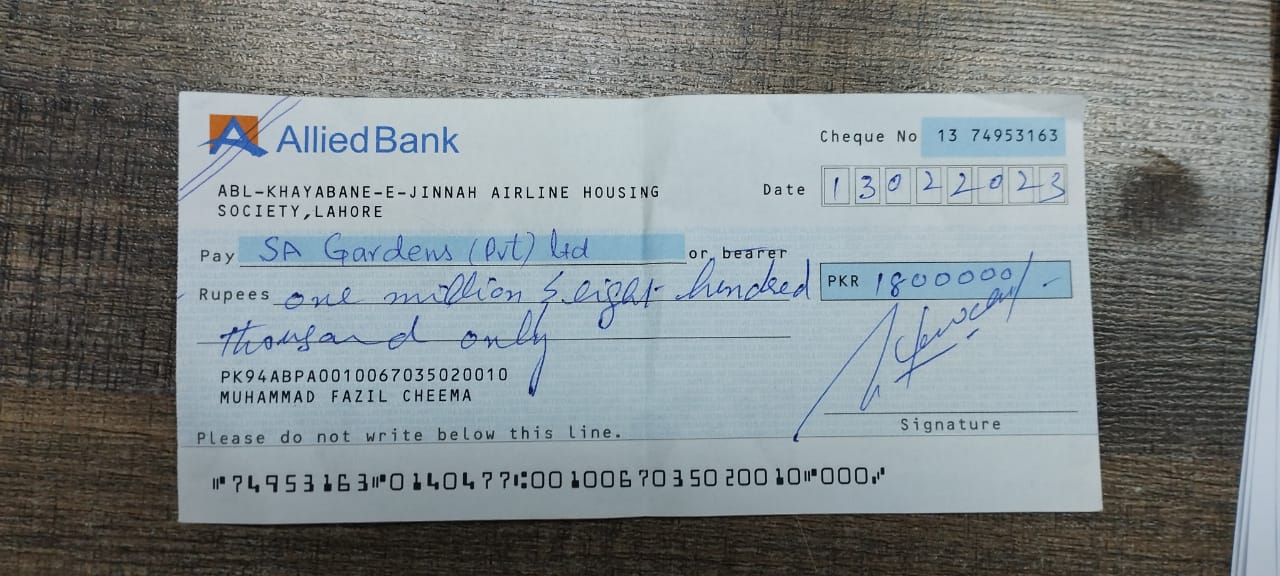 Allied Bank
Cheque No 13 74953163
ABL-KHAYABANE-E-JINNAH AIRLINE HOUSING
SOCIETY,LAHORE
Date 13022023
Pay SA Gardens (Pvt) Ltd or bearer
Rupees one million & eight hundred
PKR 1800000/-
thousand only
PK94ABPA0010067035020010
MUHAMMAD FAZIL CHEEMA
Signature
Please do not write below this line.
⑈74953163⑈0140477⑆0010067035020010⑈000⑇